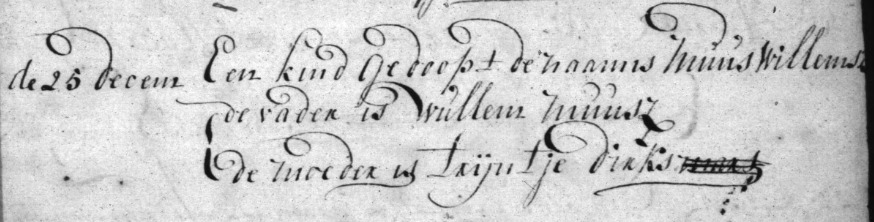 de 25 decem Een kind Gedoopt de naam is Muus Willemsz
de vader is Willem Muusz
de moeder is Trijntje dirks